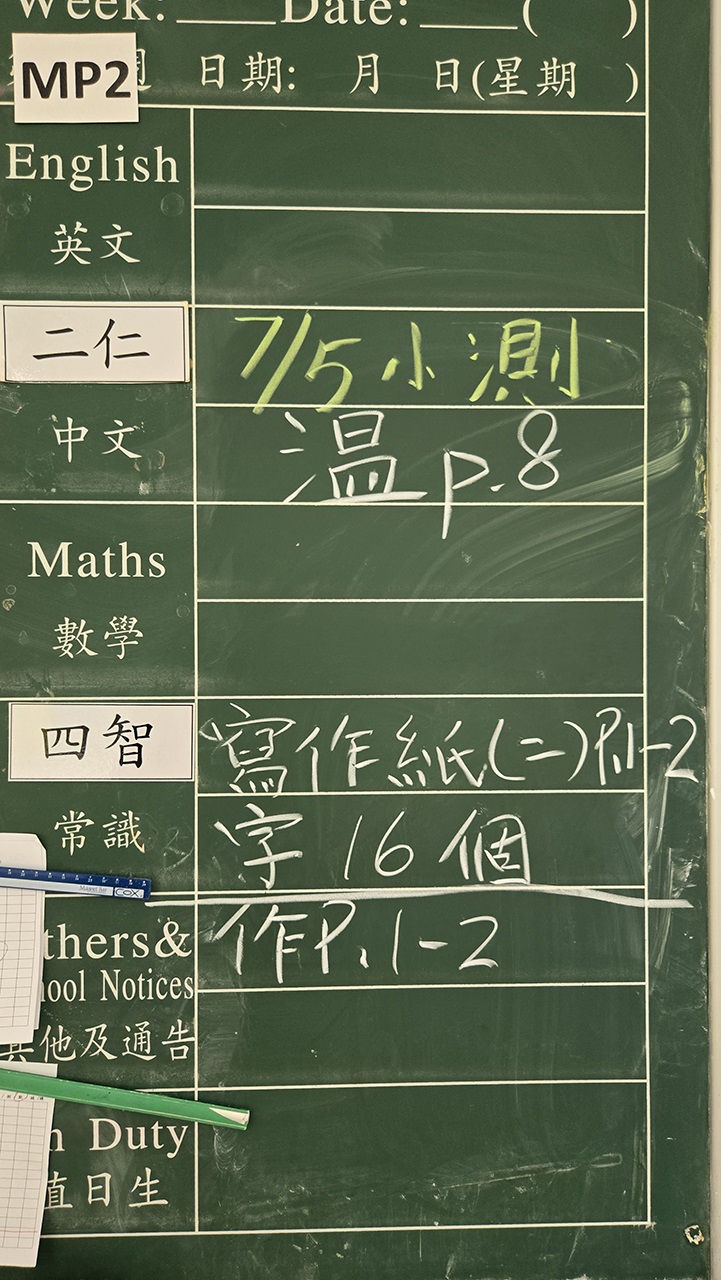 Week: Date: ( )
MP2 週 日期: 月 日(星期 )
English
英文
二仁 7/5小測
中文 温 p.8
Maths
數學
四智 寫作紙(二)P.1-2
常識 字 16 個
COX
thers& 作P.1-2
ool Notices
其他及通告
Duty
值日生